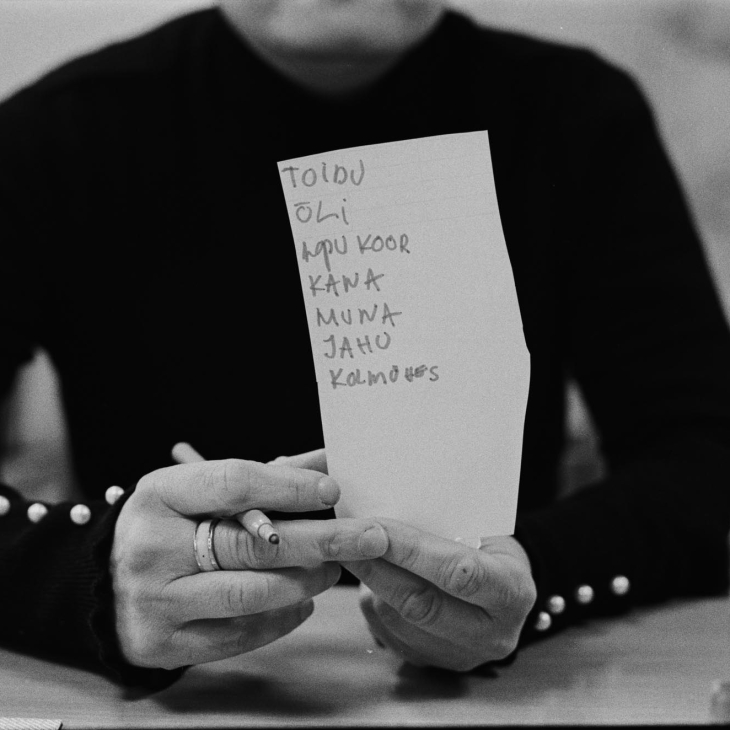 TOIDU
ÕLI
HAPUKOOR
KANA
MUNA
JAHU